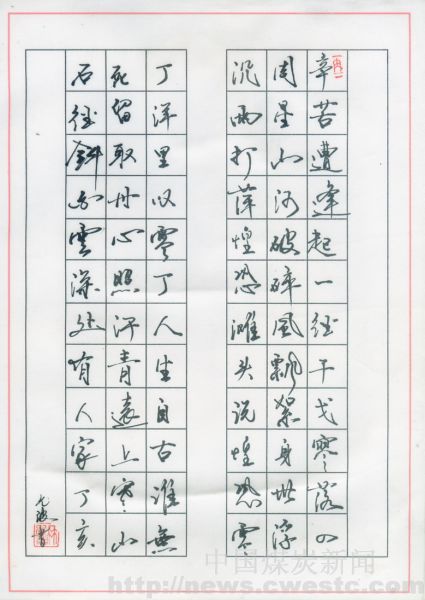 辛苦遭逢起一经干戈寥落四
周星山河破碎風飄絮身世浮
沉雨打萍惶恐滩头说惶恐零
丁洋里叹零丁人生自古谁無
死留取丹心照汗青遠上寒山
石径斜白雲深处有人家丁亥
中国煤炭新闻
http://news.cwestc.com